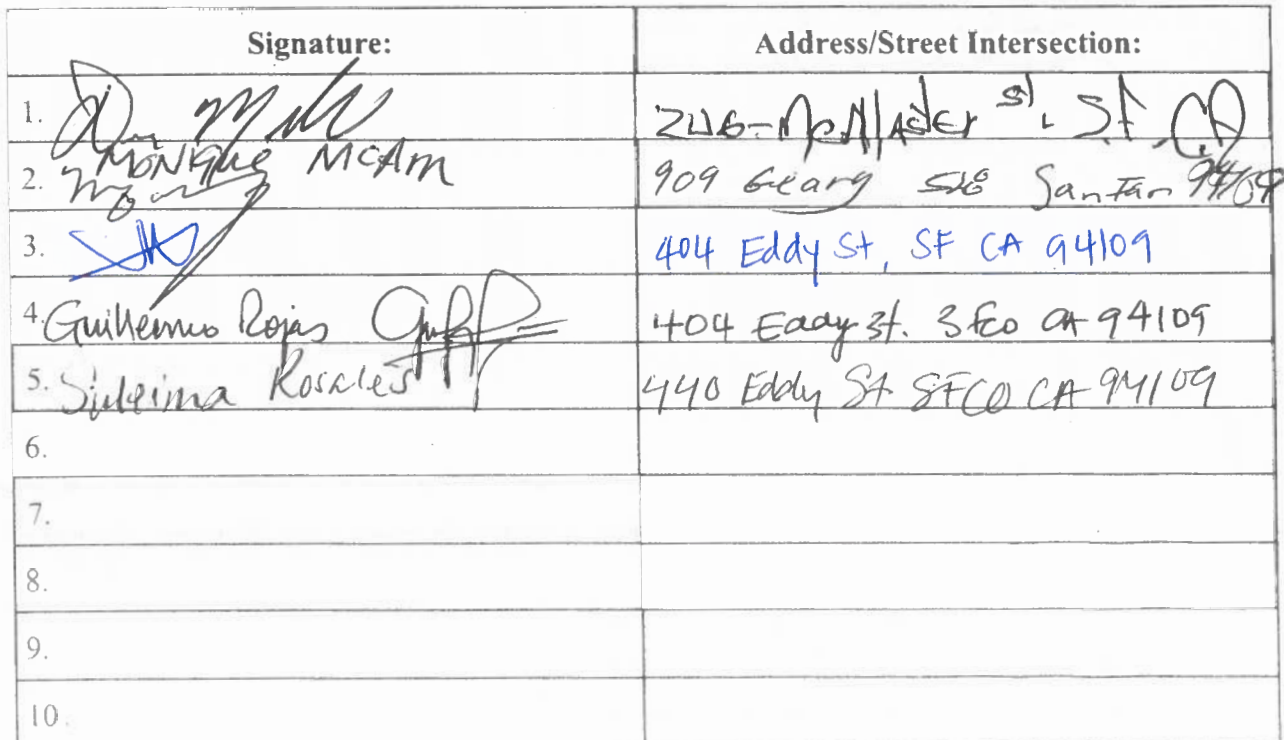 Signature: Address/Street Intersection:
1. McAllaster St. S.F. CA
2. MONIQUE MCAM 909 Geary San Fran 94109
3. 404 Eddy St, SF CA 94109
4. Guillermo Rojas 404 Eddy St. SFco CA 94109
5. Suleima Rosales 440 Eddy St SFCO CA 94109
6.
7.
8.
9.
10.